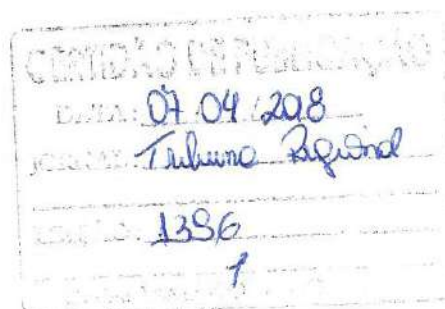 CERTIDÃO DE PUBLICAÇÃO
DATA: 07 04 2018
JORNAL: Tribuna Regional
EDIÇÃO: 1396
1